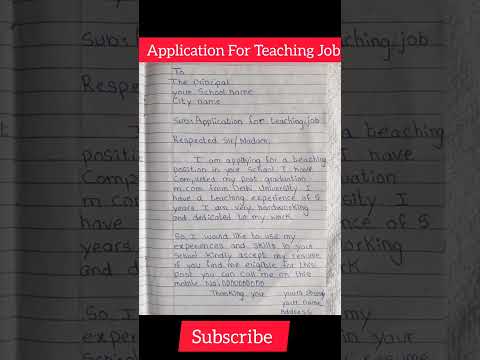 Application For Teaching Job
To
The Principal
your School name
City name
Sub:s Application for teaching job
Respected Sir/Madam,
I am applying for a teaching
position in your School I have
Completed my post graduation
m.com from Delhi University I
have a teaching experience of 5
years I am very hardworking
and dedicated to my work.
So I would like to use my
experiences and skills in your
School kindly accept my resume
if you find me eligible for this
post you can call me on this
mobile No:
Thanking your
your name
Address
Subscribe